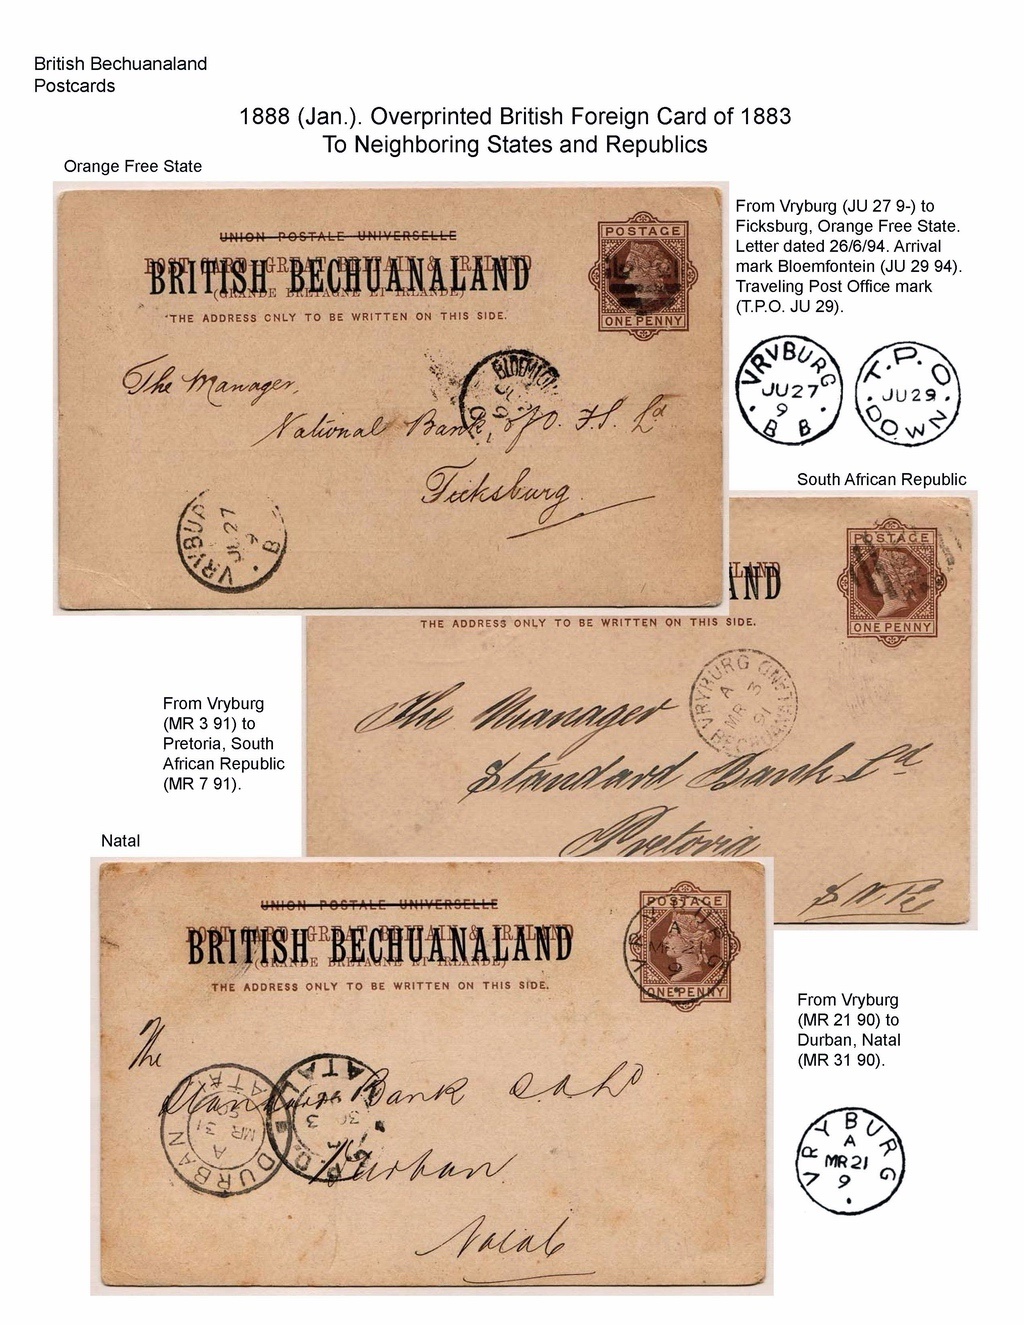 British Bechuanaland
Postcards
1888 (Jan.). Overprinted British Foreign Card of 1883
To Neighboring States and Republics
Orange Free State
UNION POSTALE UNIVERSELLE
POST CARD GREAT BRITAIN & IRELAND
BRITISH BECHUANALAND
(GRANDE BRETAGNE ET IRLANDE)
THE ADDRESS ONLY TO BE WRITTEN ON THIS SIDE.
POSTAGE
ONE PENNY
The Manager,
National Bank of O. F.S. Ld.
Ficksburg
BLOEMFON
VRYBUR
JU 27
9
B
From Vryburg (JU 27 9-) to
Ficksburg, Orange Free State.
Letter dated 26/6/94. Arrival
mark Bloemfontein (JU 29 94).
Traveling Post Office mark
(T.P.O. JU 29).
VRYBURG
JU 27
9
B B
T.P.O
JU 29
DOWN
South African Republic
LAND
AND
THE ADDRESS ONLY TO BE WRITTEN ON THIS SIDE.
POSTAGE
ONE PENNY
VRYBURG
A
MR 3
91
BECHUANALAND
The Manager
Standard Bank Ld
Pretoria
S.A.R.
From Vryburg
(MR 3 91) to
Pretoria, South
African Republic
(MR 7 91).
Natal
UNION POSTALE UNIVERSELLE
POST CARD GREAT BRITAIN & IRELAND
BRITISH BECHUANALAND
(GRANDE BRETAGNE ET IRLANDE)
THE ADDRESS ONLY TO BE WRITTEN ON THIS SIDE.
POSTAGE
ONE PENNY
VRYBURG
A
MR 21
9
The
Standard Bank S.A. Ld
Durban
Natal
DURBAN
NATAL
A
MR 31
90
From Vryburg
(MR 21 90) to
Durban, Natal
(MR 31 90).
VRYBURG
A
MR 21
9